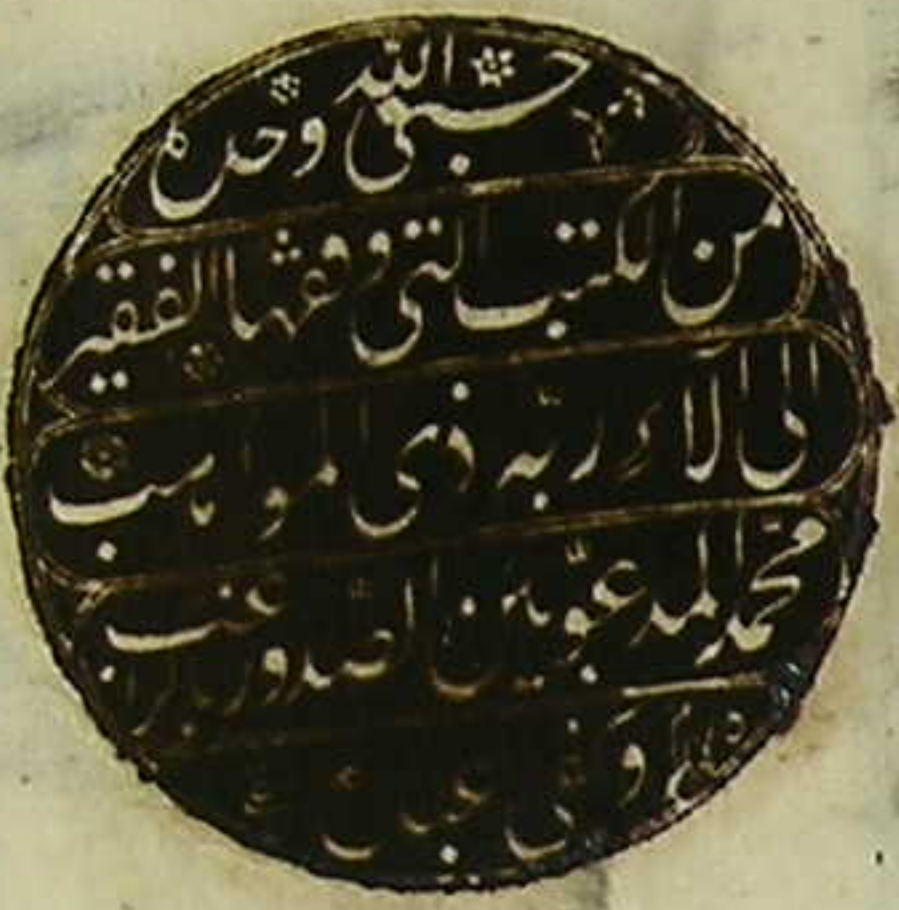 حسبي الله وحده
من الكتب التي وقفها الفقير
الى آلاء ربّه ذي المواهب
محمّد المدعوّ بين الصّدور بالراغب